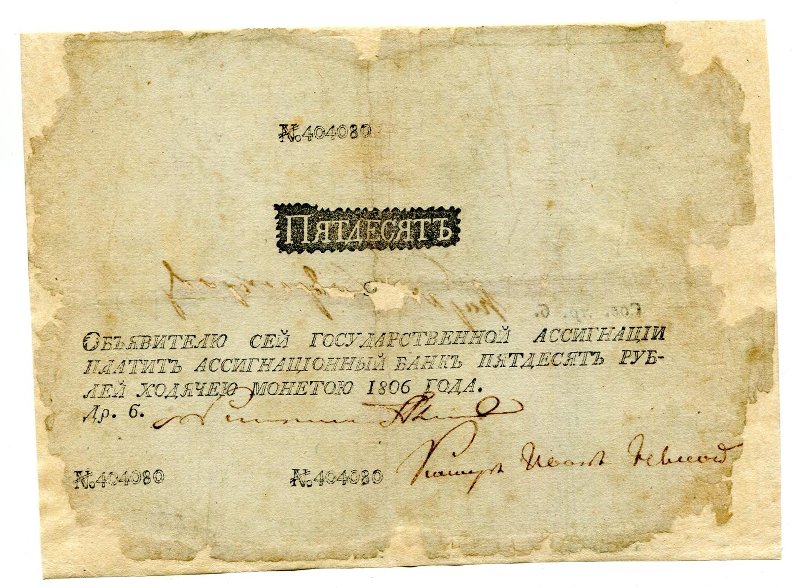 №404080
ПЯТДЕСЯТЪ
ОБЪЯВИТЕЛЮ СЕЙ ГОСУДАРСТВЕННОЙ АССИГНАЦІИ
ПЛАТИТЪ АССИГНАЦІОННЫЙ БАНКЪ ПЯТДЕСЯТЪ РУБ-
ЛЕЙ ХОДЯЧЕЮ МОНЕТОЮ 1806 ГОДА.
Др. 6.
№404080 №404080